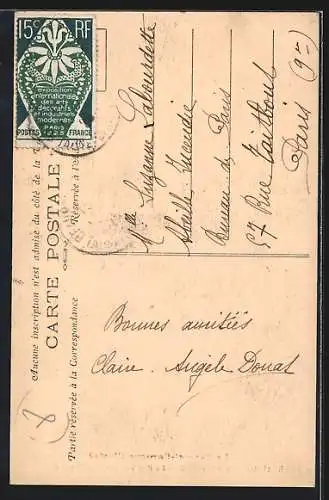 15c RF
exposition
internationale
des arts
décoratifs
et industriels
modernes
PARIS
1925
POSTES FRANCE
Aucune inscription n'est admise du côté de la
CARTE POSTALE
Réservée à
Partie réservée à la Correspondance
Mlle Suzanne Labourdette
Abeille Incendie
Bureau de Paris
57 Rue Taitbout
Paris (9e)
Bonnes amitiés
Claire. Angèle Donat